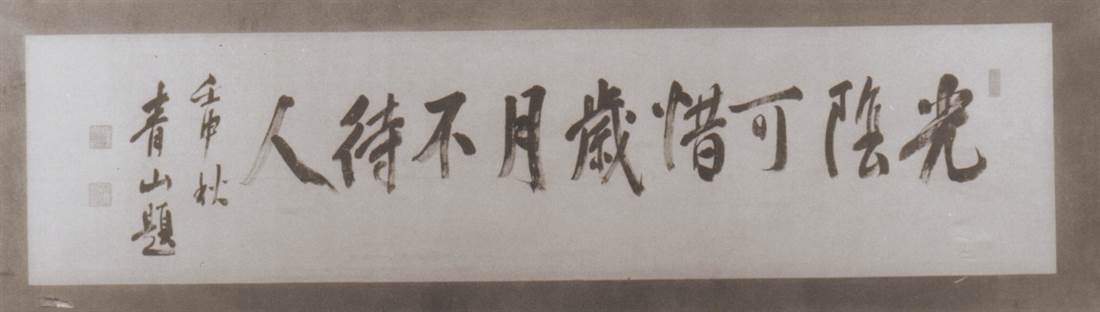 光陰可惜歳月不待人
壬申秋
青山題